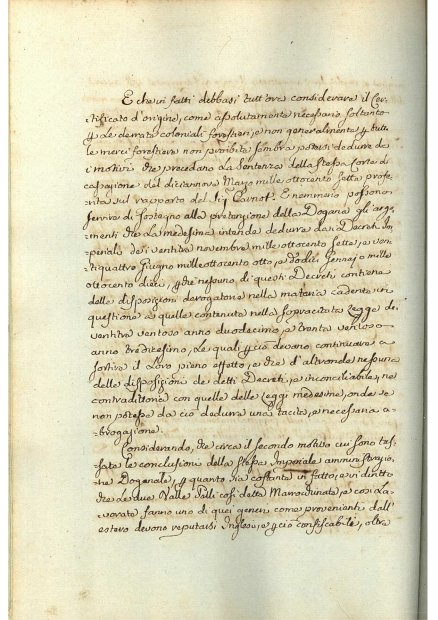 E che in fatti debbasi tutt'ora considerare il Cer-
-tificato d'origine, come assolutamente necessario soltanto
p le derrate coloniali forestiere, e non generalmente p tutte
le merci forestiere non proibite sembra potersi dedurre da
motivi che precedano la Sentenza della stessa Corte di
cassazione del diciannove Mayo mille ottocento sette profe-
rita sul rapporto del Sig.
servire di sostegno alla pretenzione della Dogana gli argo-
menti che la medesima intende dedurre dai Decreti Im-
periali de ventitre novembre mille ottocento sette, e ven-
tiquattro Giugno mille ottocento otto, e dodici Gennajo mille
ottocento dieci, p che nessuno di questi Decreti contiene
delle disposizioni derogatorie nella materia cadente in
questione a quelle contenute nella sopracitata Legge de
ventitre ventoso anno duodecimo, e trenta ventoso
anno tredicesimo, le quali p ciò devono continuare a
sortire il loro pieno effetto, e che d'altronde nessuna
delle disposizioni de detti Decreti, è inconciliabile, ne
contradittoria con quelle delle Leggi medesime, onde se
non potesse da ciò dedurre una tacita, e necessaria a-
-brogazione.
Considerando, che circa il secondo motivo cui sono
le conclusioni della stessa Imperiale amministrazio-
ne Doganale, p quanto sia costante in fatto, e in diritto
che le due Balle Pelli così dette e così la-
vorate sanno uno di quei generi come provenienti dall'
estero devono reputarsi Inglesi, e p ciò confiscabile, oltre